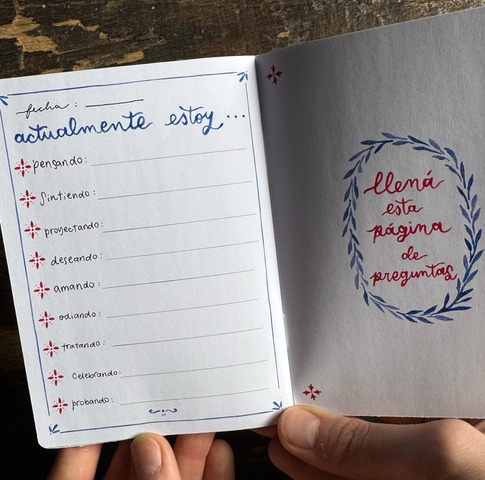 fecha:
actualmente estoy...
pensando:
Sintiendo:
proyectando:
deseando:
amando:
odiando:
tratando:
Celebrando:
probando:
llená
esta
página
de
preguntas